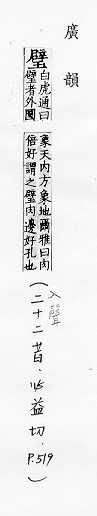 廣韻
璧
白虎通曰
璧者外圓
象天內方象地爾雅曰肉
倍好謂之璧肉邊好孔也
入聲
(二十二昔.必益切.P.519)